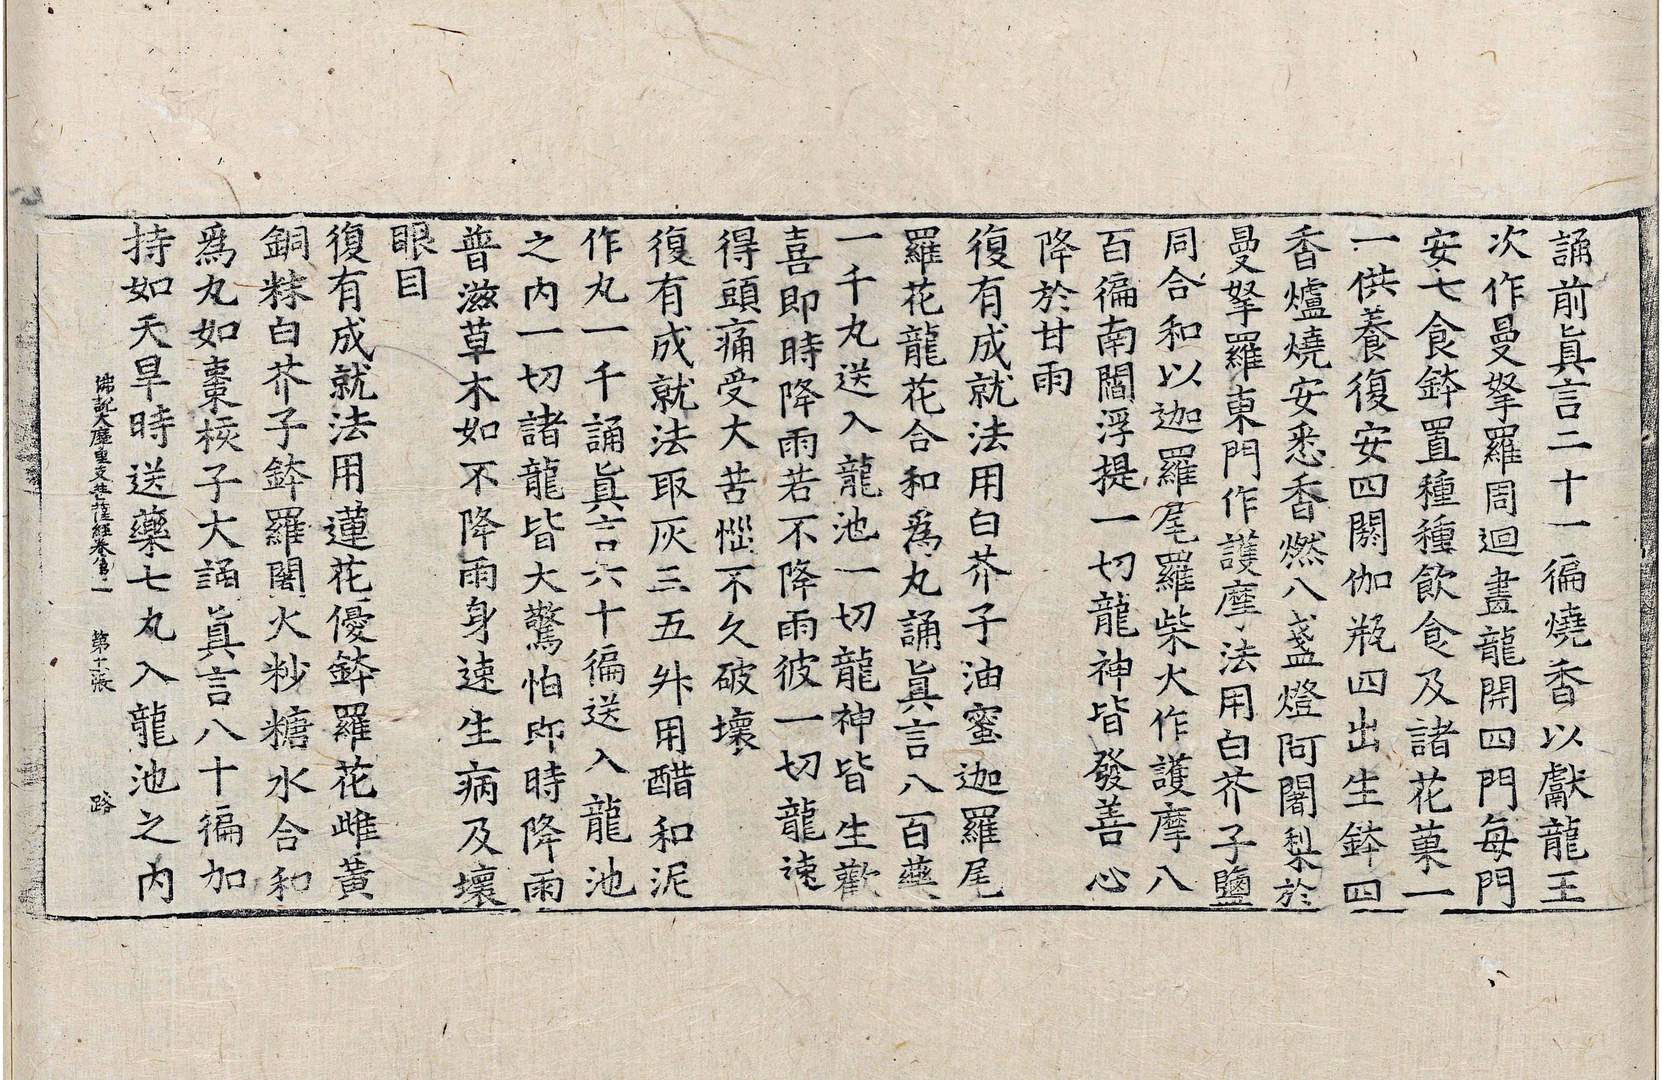 誦前眞言二十一徧燒香以獻龍王
次作曼拏羅周迴畫龍開四門每門
安七食鉢置種種飲食及諸花菓一
一供養復安四閼伽瓶四出生鉢四
香爐燒安悉香燃八盞燈阿闍梨於
曼拏羅東門作護摩法用白芥子鹽
同合和以迦羅尾羅柴火作護摩八
百徧南閻浮提一切龍神皆發善心
降於甘雨
復有成就法用白芥子油蜜迦羅尾
羅花龍花合和爲丸誦眞言八百徧
一千丸送入龍池一切龍神皆生歡
喜即時降雨若不降雨彼一切龍速
得頭痛受大苦惱不久破壞
復有成就法取灰三五升用醋和泥
作丸一千誦眞言六十徧送入龍池
之內一切諸龍皆大驚怕即時降雨
普滋草木如不降雨身速生病及壞
眼目
復有成就法用蓮花優鉢羅花雌黃
銅粖白芥子鉢羅闍火粆糖水合和
爲丸如棗核子大誦眞言八十徧加
持如天旱時送藥七丸入龍池之內
佛說大摩里支菩薩經卷第一 第十一張 路